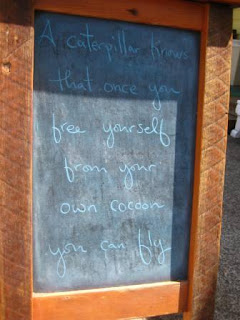 A caterpillar knows
that once you
free yourself
from your
own cocoon
you can fly